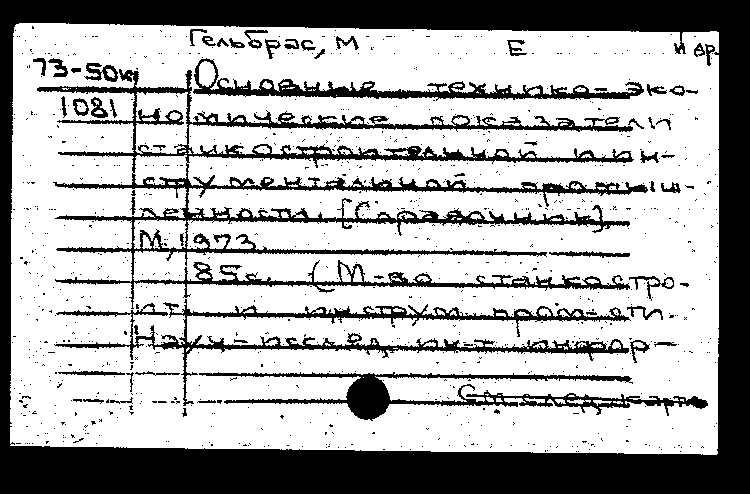 Гельбрас, М. Е. и др.
73-50к Основные технико-эко-
1081 номические показатели
станкостроительной и ин-
струментальной промыш-
ленности. [Справочник].
М., 1973.
85с. (М-во станкостро-
ит. и инструм. пром-сти.
Науч.-исслед. ин-т инфор-
См. след. карт.